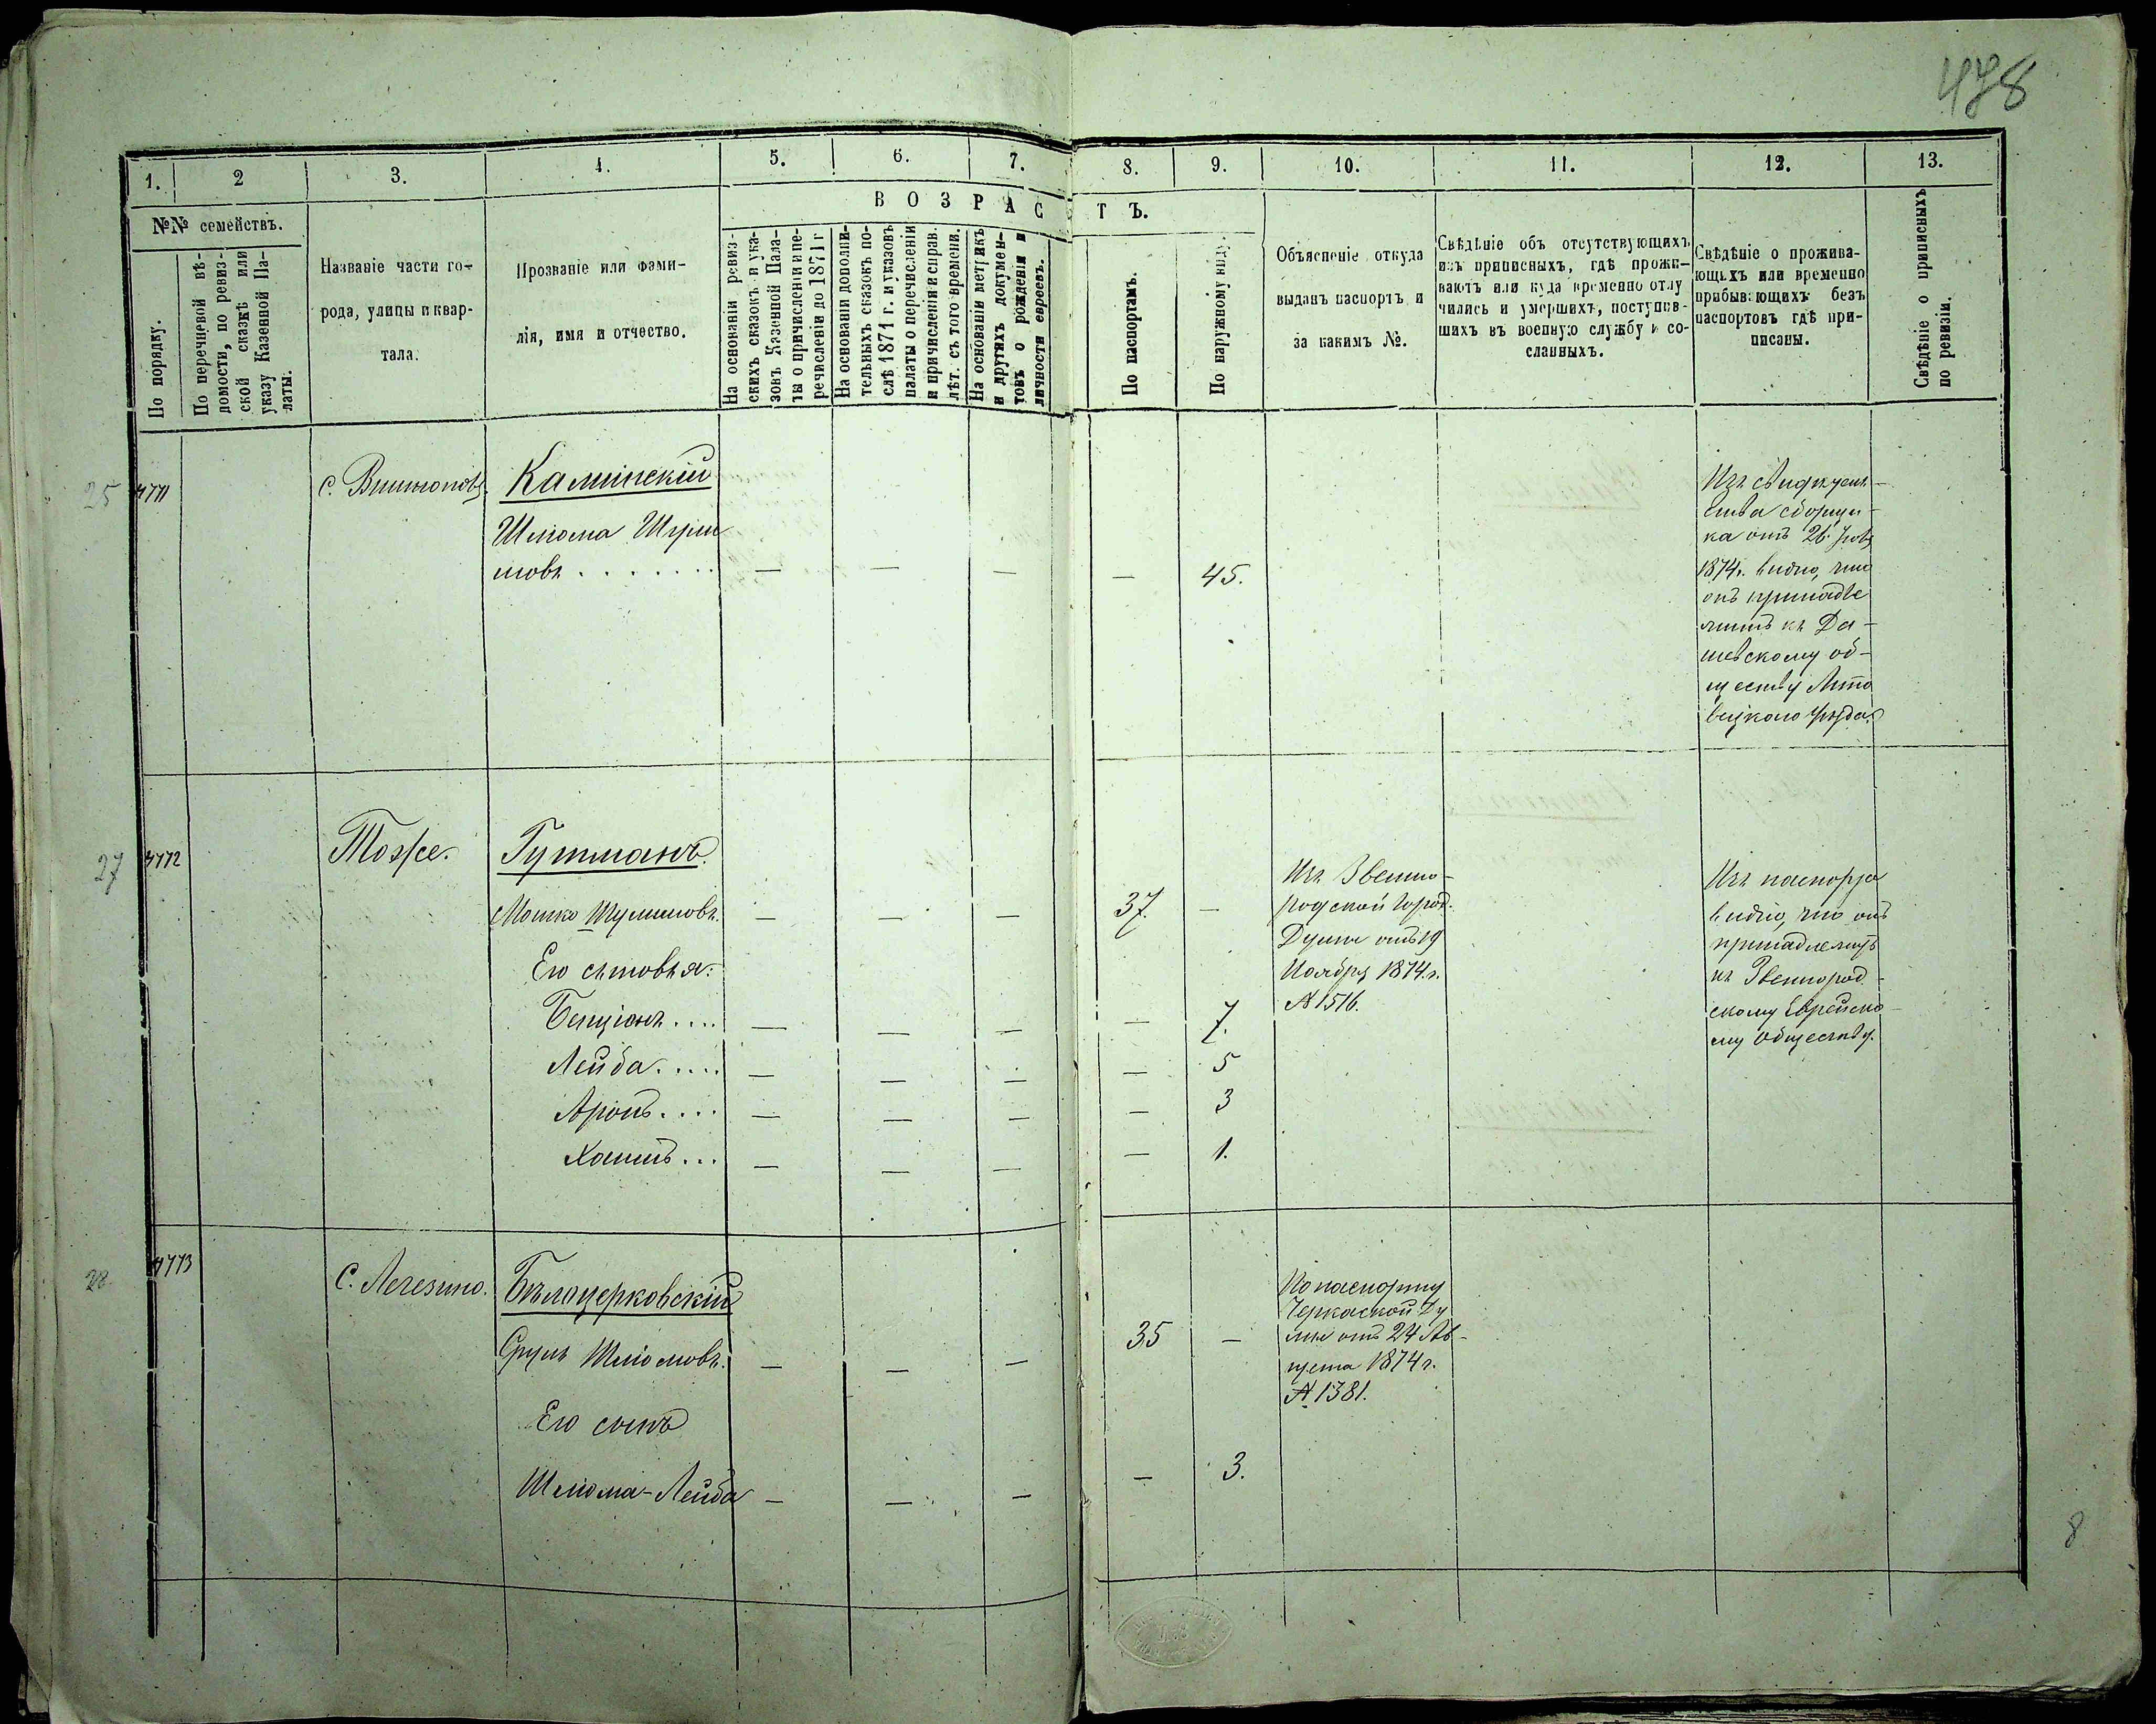 478
1.
2
3.
4.
5.
6.
7.
8.
9.
10.
11.
12.
13.
№№ семействъ.
По порядку.
По перечневой вѣ-
домости, по ревиз-
ской сказкѣ или
указу Казенной Па-
латы.
Названіе части го-
рода, улицы и квар-
тала.
Прозваніе или фами-
лія, имя и отчество.
ВОЗРАСТЪ.
На основаніи ревиз-
скихъ сказокъ и ука-
зовъ Казенной Пала-
ты о причисленіи и пе-
речисленіи до 1871 г
На основаніи дополни-
тельныхъ сказокъ по-
слѣ 1871 г. и указовъ
палаты о перечисленіи
и причисленіи и справ.
лѣт. съ того времени.
На основаніи метрикъ
и другихъ докумен-
товъ о рожденіи и
личности евреевъ.
По паспортамъ.
По наружному виду.
Объясненіе откуда
выданъ паспортъ и
за какимъ №.
Свѣдѣніе объ отсутствующихъ
изъ приписныхъ, гдѣ прожи-
ваютъ или куда временно отлу
чились и умершихъ, поступив-
шихъ въ военную службу и со-
сланныхъ.
Свѣдѣніе о прожива-
ющихъ или временно
прибывающихъ безъ
паспортовъ гдѣ при-
писаны.
Свѣдѣніе о приписныхъ
по ревизіи.
25
4771
с.
Каминскій
Шлома
— — — — 45.
Изъ свидѣтель-
ства сборщи-
ка отъ 26
1874г. видно, что
онъ принадле
житъ къ Да-
шевскому об-
ществу Липо
вецкаго уѣзда.
27
4772
Тоже.
Гутманъ.
Мошко Шулимовъ. — — — 37. —
Его сыновья:
Бенціонъ.... — — — — 7.
Лейба..... — — — — 5
Аронъ.... — — — — 3
Хаимъ... — — — — 1.
Изъ Звенио-
родской Город.
Думы отъ 19
Ноября 1874.г.
№ 1516.
Изъ паспорта
видно, что онъ
принадлежитъ
къ Звенигород-
скому Еврейско-
му Обществу.
28
4773
С. Легезино.
Бѣлоцерковскій
Сруль Шліомовъ. — — — 35 —
Его сынъ
Шліома-Лейба — — — — 3.
По паспорту
Черкаской Ду
мы отъ 24 Ав-
густа 1874 г.
№ 1381.
8